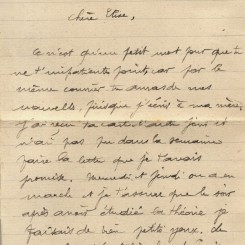 Chère Elise,
Ce n'est qu'un petit mot pour que tu
ne t'impatientes point, car par le
même courrier tu auras de mes
nouvelles, puisque j'écris à ma mère.
J'ai reçu ta carte l'autre jour et
n'ai pas pu dans la semaine
faire la lettre que je t'avais
promise. Mercredi et jeudi on a em
marché et je t'assure que le soir
après avoir étudié la théorie je
faisais de bien petits yeux. Le